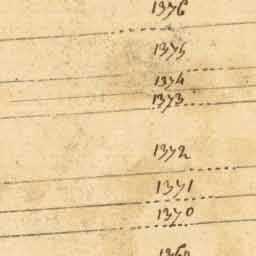 1376
1375
1374
1373
1372
1371
1370